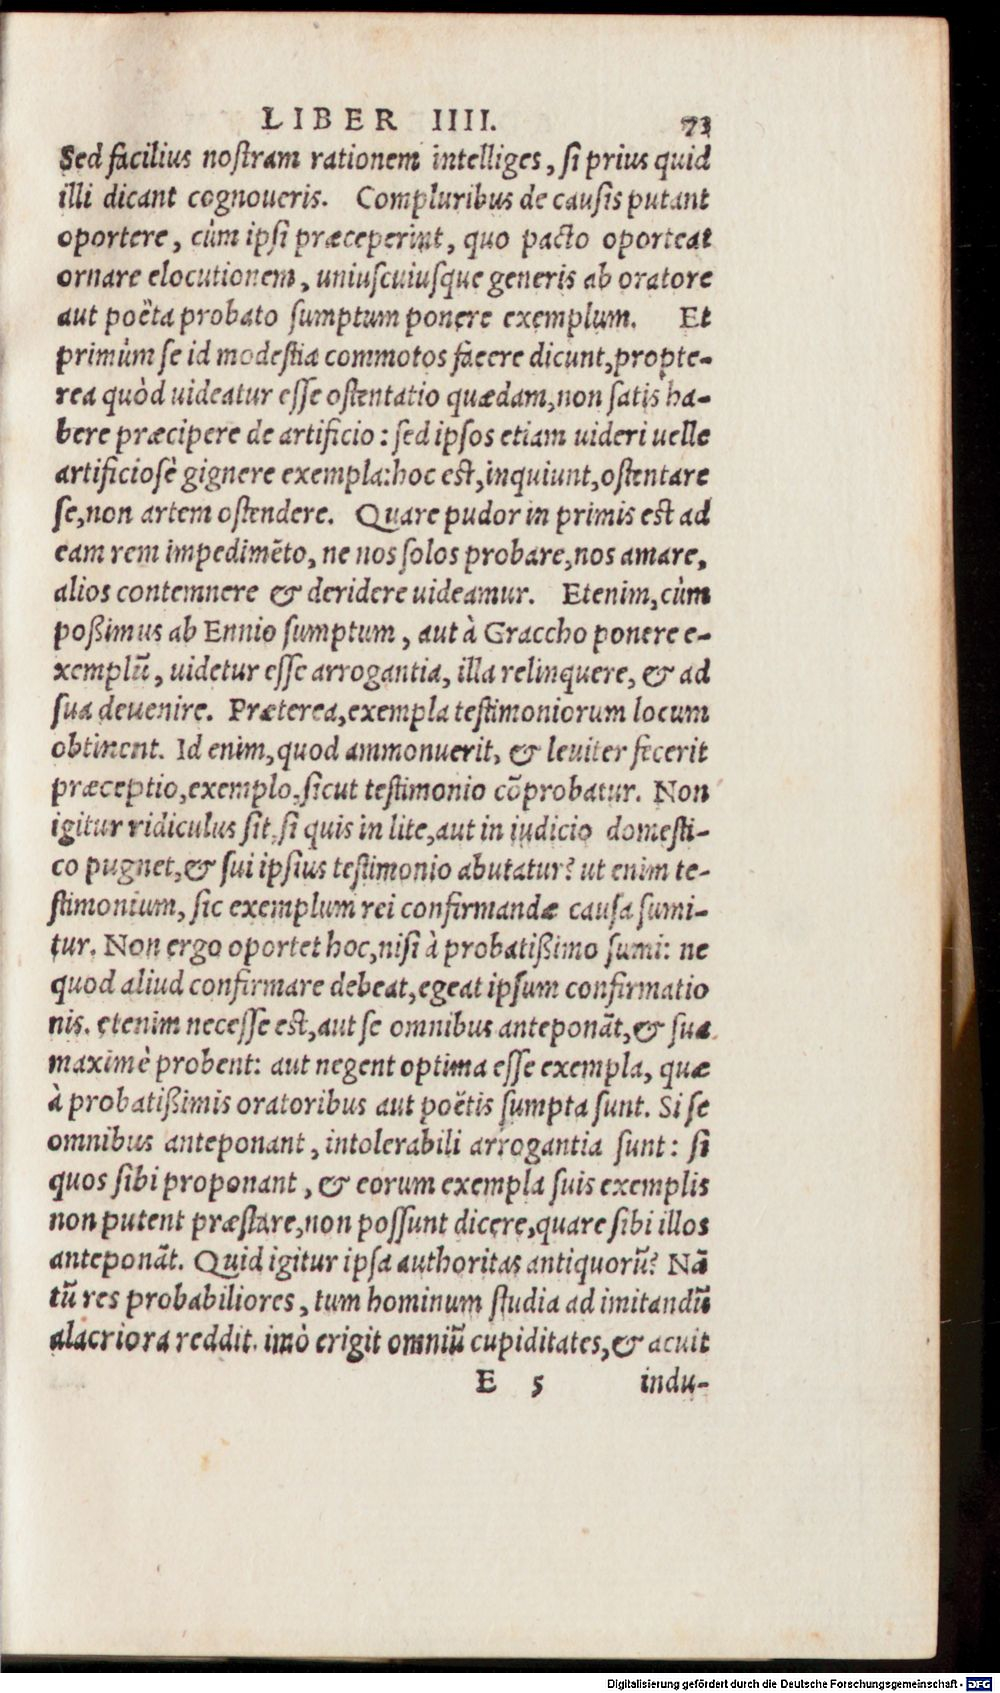 LIBER IIII. 73
Sed facilius nostram rationem intelliges, si prius quid
illi dicant cognoueris. Compluribus de causis putant
oportere, cùm ipsi præceperint, quo pacto oporteat
ornare elocutionem, uniuscuiusque generis ab oratore
aut poëta probato sumptum ponere exemplum. Et
primùm se id modestia commotos facere dicunt, propte-
rea quòd uideatur esse ostentatio quædam, non satis ha-
bere præcipere de artificio: sed ipsos etiam uideri uelle
artificiosè gignere exempla: hoc est, inquiunt, ostentare
se, non artem ostendere. Quare pudor in primis est ad
eam rem impedimẽto, ne nos solos probare, nos amare,
alios contemnere & deridere uideamur. Etenim, cùm
poßimus ab Ennio sumptum, aut à Graccho ponere e-
xemplũ, uidetur esse arrogantia, illa relinquere, & ad
sua deuenire. Præterea, exempla testimoniorum locum
obtinent. Id enim, quod ammonuerit, & leuiter fecerit
præceptio, exemplo, sicut testimonio cõprobatur. Non
igitur ridiculus sit, si quis in lite, aut in iudicio domesti-
co pugnet, & sui ipsius testimonio abutatur? ut enim te-
stimonium, sic exemplum rei confirmandæ causa sumi-
tur. Non ergo oportet hoc, nisi à probatißimo sumi: ne
quod aliud confirmare debeat, egeat ipsum confirmatio
nis. etenim necesse est, aut se omnibus anteponãt, & sua
maximè probent: aut negent optima esse exempla, quæ
à probatißimis oratoribus aut poëtis sumpta sunt. Si se
omnibus anteponant, intolerabili arrogantia sunt: si
quos sibi proponant, & eorum exempla suis exemplis
non putent præstare, non possunt dicere, quare sibi illos
anteponãt. Quid igitur ipsa authoritas antiquorũ? Nã
tũ res probabiliores, tum hominum studia ad imitandũ
alacriora reddit. imò erigit omniũ cupiditates, & acuit
E 5 indu-
Digitalisierung gefördert durch die Deutsche Forschungsgemeinschaft - DFG